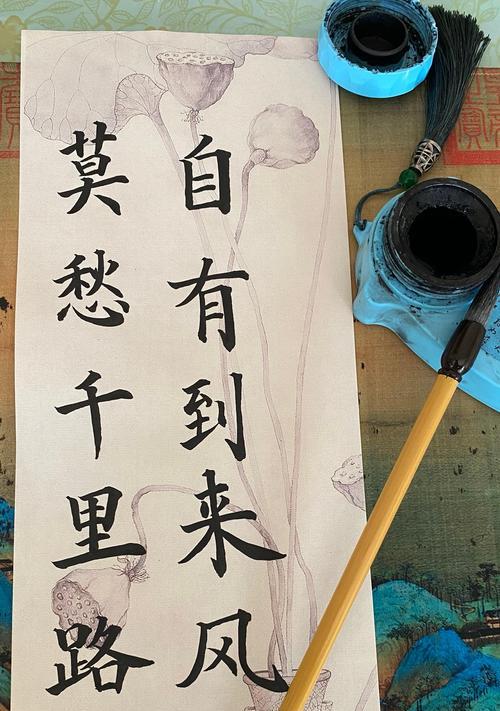 莫愁千里路
自有到来风